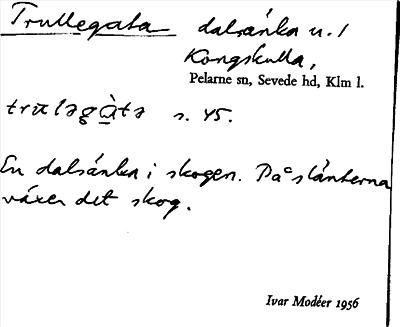 Trullegata dalsänka u. l
Kongskulla,
Pelarne sn, Sevede hd, Klm l.
trɯləgàtə s. 45.
En dalsänka i skogen. På slänterna
växer det skog.
Ivar Modéer 1956